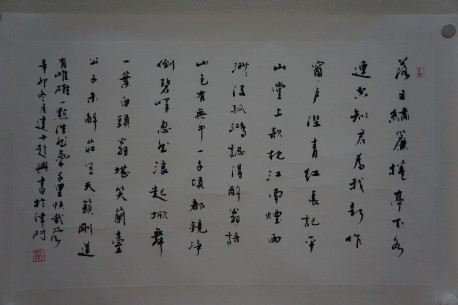 落日繡簾捲亭下水
連空知君為我新作
窗戶溼青紅長記平
山堂上欹枕江南煙雨
渺没孤鴻認得醉翁語
山色有無中一千頃都鏡淨
倒碧峰忽然浪起掀舞
一葉白頭翁堪笑蘭臺
公子未解莊生天籟剛道
有雌雄一點浩然氣千里快哉風
辛卯冬月建書於津門